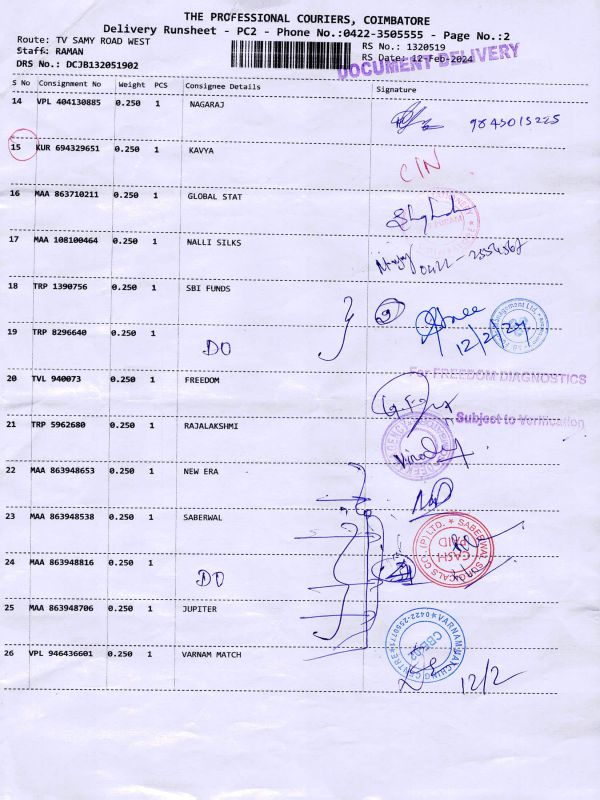 THE PROFESSIONAL COURIERS, COIMBATORE
Delivery Runsheet - PC2 - Phone No.:0422-3505555 - Page No.:2
Route: TV SAMY ROAD WEST
Staff: RAMAN
DRS No.: DCJB132051902
RS No.: 1320519
RS Date: 12-Feb-2024
DOCUMENT DELIVERY
S No Consignment No Weight PCS Consignee Details Signature
14 VPL 404130885 0.250 1 NAGARAJ 9843015225
15 KUR 694329651 0.250 1 KAVYA C/N
16 MAA 863710211 0.250 1 GLOBAL STAT
17 MAA 108100464 0.250 1 NALLI SILKS 0422-2554567
18 TRP 1390756 0.250 1 SBI FUNDS
12/2/24
19 TRP 8296640 0.250 1 DO
For FREEDOM DIAGNOSTICS
20 TVL 940073 0.250 1 FREEDOM
Subject to Verification
21 TRP 5962680 0.250 1 RAJALAKSHMI
22 MAA 863948653 0.250 1 NEW ERA
23 MAA 863948538 0.250 1 SABERWAL
SABERWAL SURGICALS CO. (P) LTD.
CASH PAID
24 MAA 863948816 0.250 1 DO
25 MAA 863948706 0.250 1 JUPITER
26 VPL 946436601 0.250 1 VARNAM MATCH
VARNAM MATCHING CENTRE
12/2